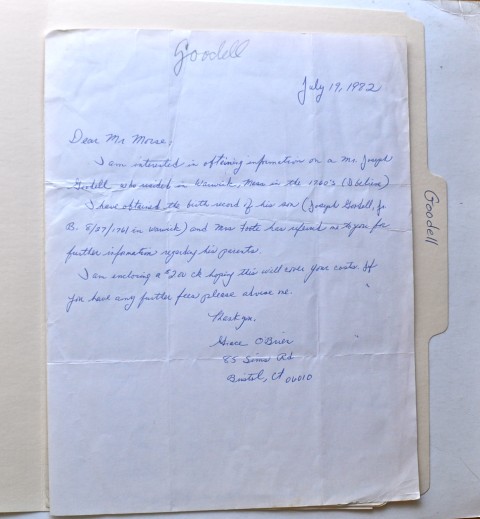 Goodell
July 19, 1982
Dear Mr Morse,
I am interested in obtaining information on a Mr. Joseph
Goodell who resided in Warwick, Mass in the 1760's (I believe)
I have obtained the birth record of his son (Joseph Goodell, Jr
B. 8/27/1761 in Warwick) and Mrs Foote has referred me to you for
further information regarding his parents.
I am enclosing a $20 ck hoping this will cover your costs. If
you have any further fees please advise me.
Thank you,
Grace O'Brien
85 Sims Rd
Bristol, Ct 06010
Goodell